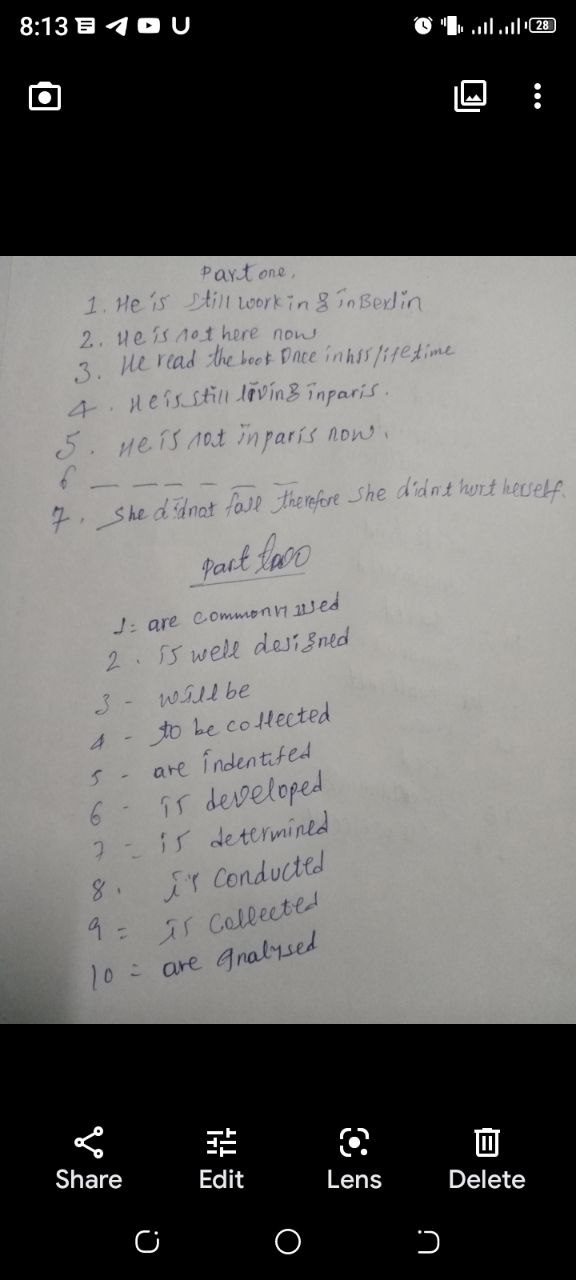 8:13 U 28
Part one,
1. He is still working in Berlin
2. He is not here now
3. He read the book Once in hss lifetime
4. He is still living in paris.
5. He is not in paris now.
6 _ _ _ _ _ _
7. She didnat fall therefore she didnt hurt herself.
part two
1= are common used
2. is well designed
3 - will be
4 - to be collected
5 - are indentifed
6 - is developed
7 = is determined
8. is Conducted
9 = is Collected
10 = are analysed
Share Edit Lens Delete